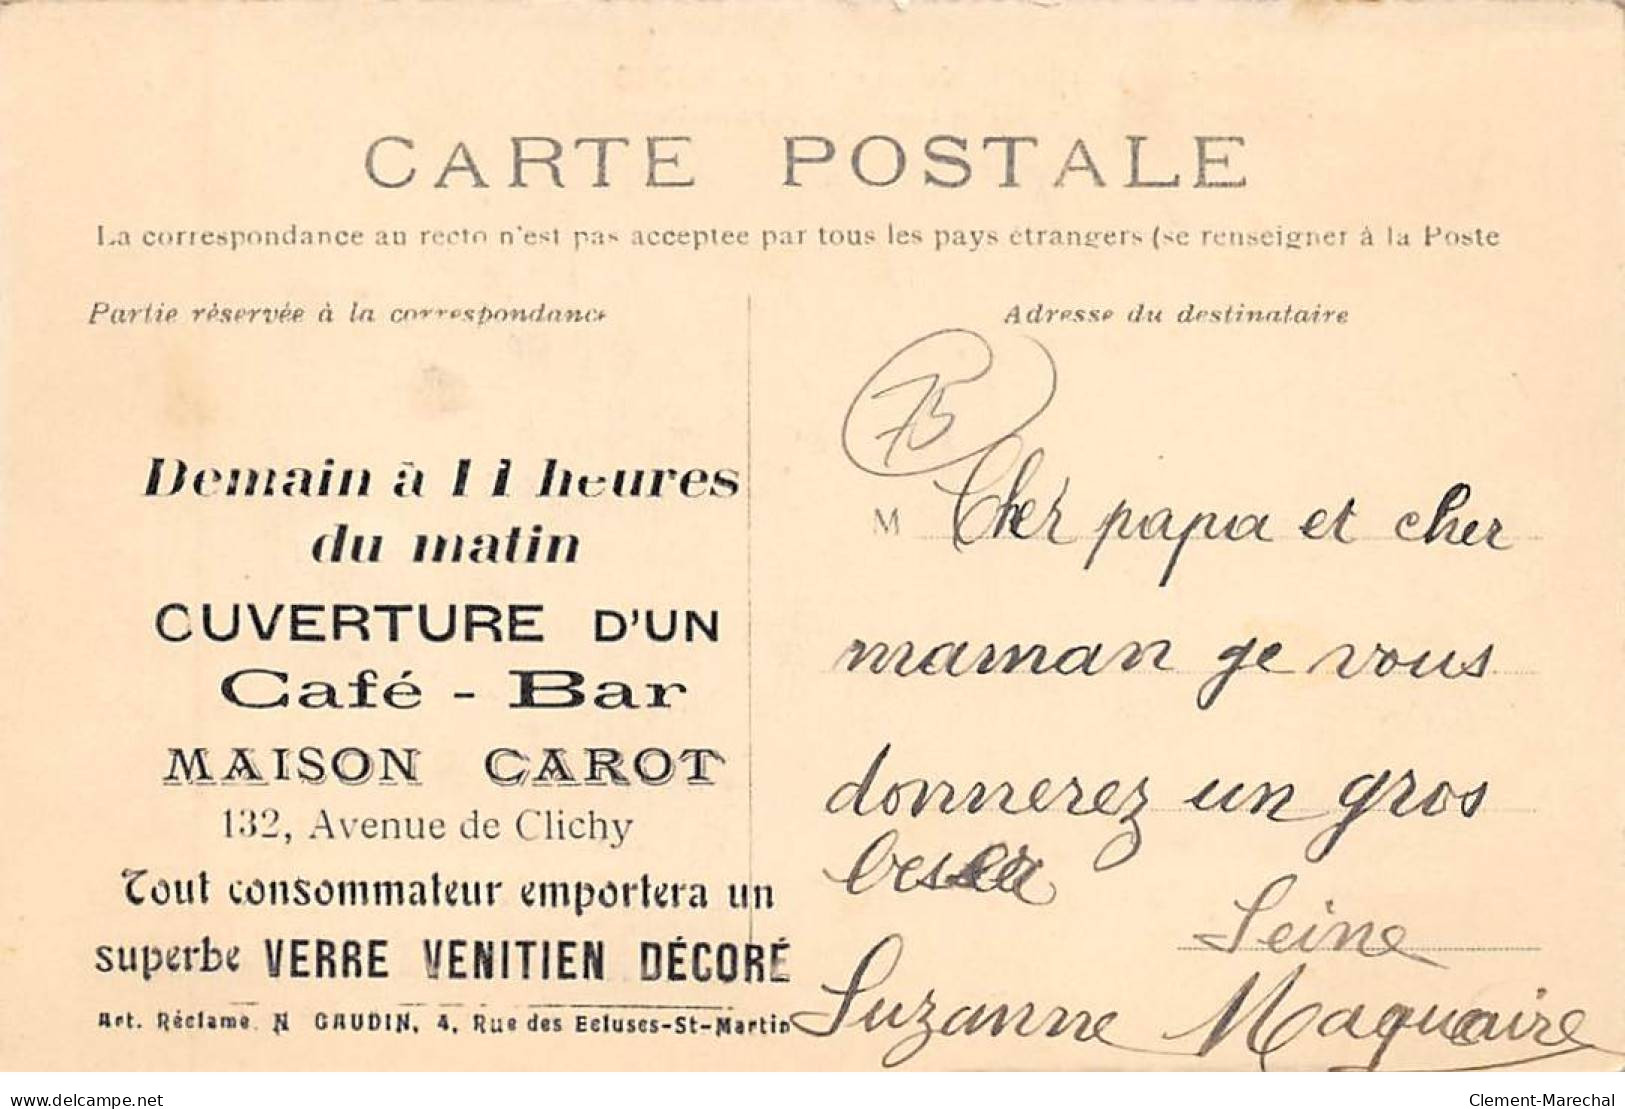 CARTE POSTALE
La correspondance au recto n'est pas acceptee par tous les pays étrangers (se renseigner à la Poste
Partie réservée à la correspondance
Demain à 11 heures
du matin
OUVERTURE D'UN
Café - Bar
MAISON CAROT
132, Avenue de Clichy
Tout consommateur emportera un
superbe VERRE VENITIEN DÉCORÉ
Art. Réclame. N GAUDIN, 4, Rue des Ecluses-St-Martin
Adresse du destinataire
75
M Cher papa et cher
maman je vous
donnerez un gros
Seine
Suzanne Maquaire
delcampe.net
Clement-Marechal